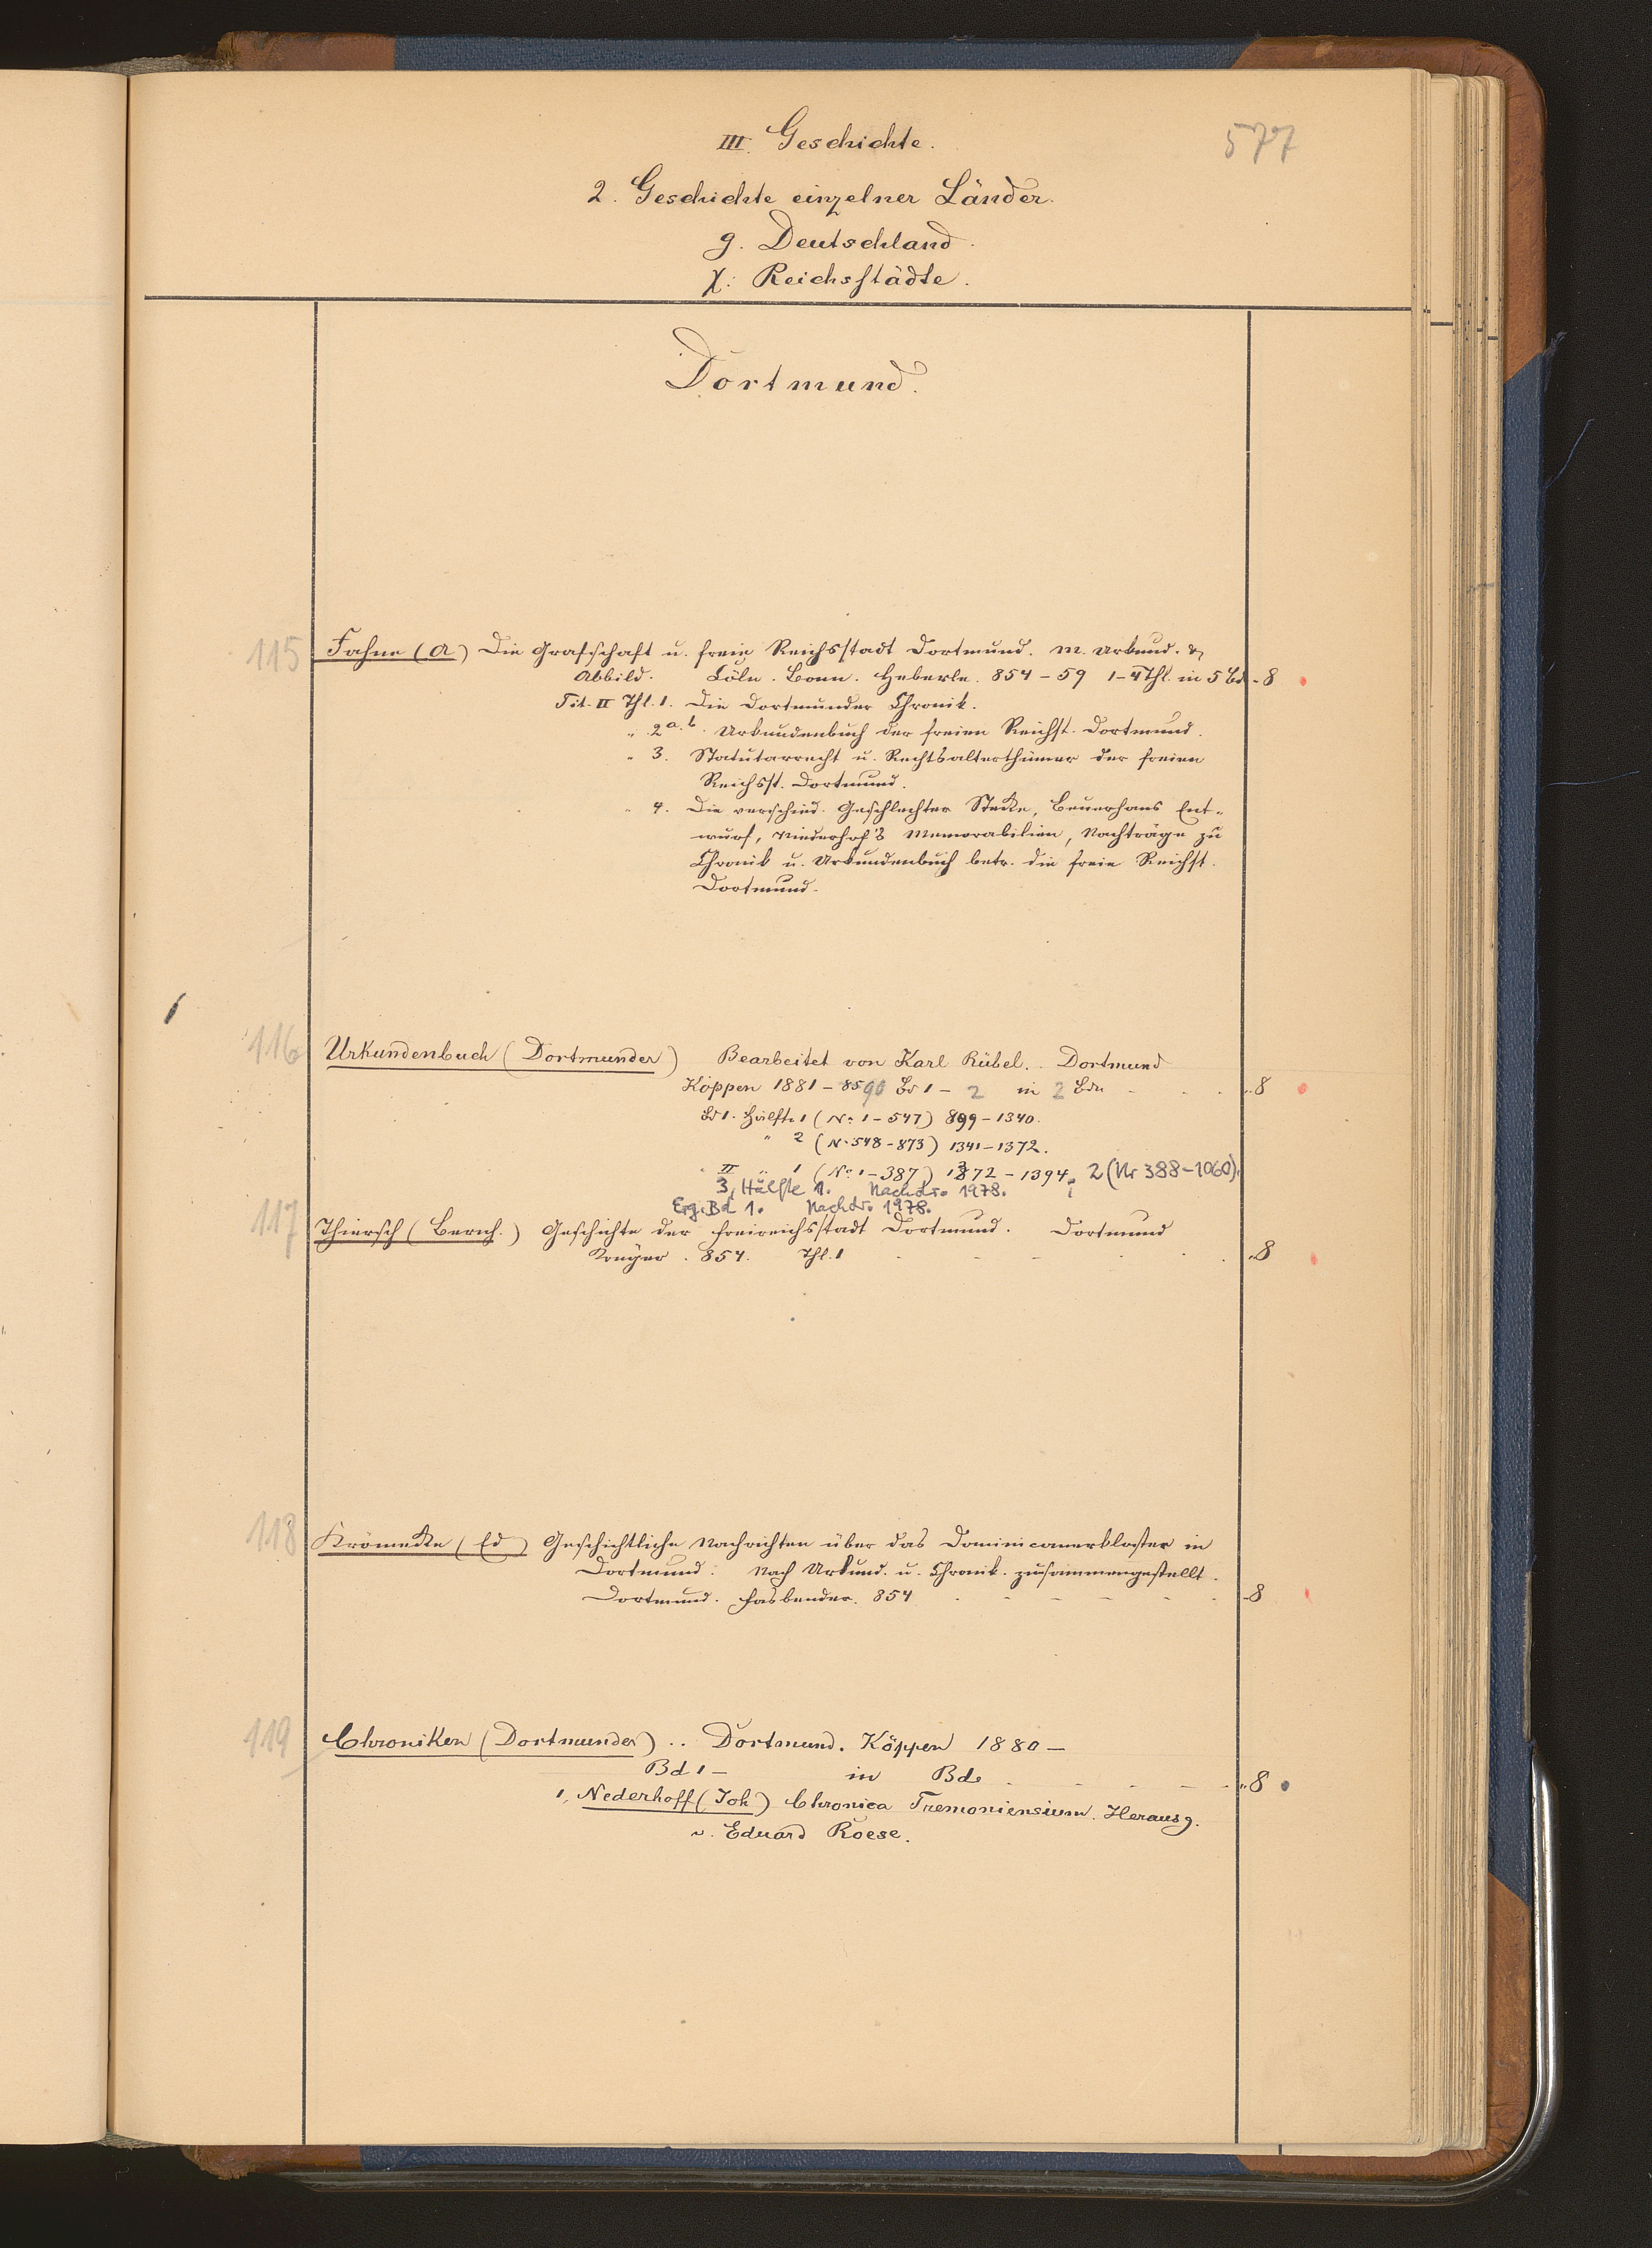 577
III. Geschichte.
2. Geschichte einzelner Länder.
g. Deutschland.
χ: Reichsstädte.
Dortmund.
115 Fahne (A) Die Grafschaft u. freie Reichsstadt Dortmund. M. Urkund. &
Abbild. Cöln. Bonn. Heberle. 854-59 1-4 Thl. in 5 Bd - 8
Tit. II Thl. 1. Die Dortmunder Chronik.
" 2 a. b. Urkundenbuch der freien Reichsst. Dortmund.
" 3. Statutarrecht u. Rechtsalterthümer der freien
Reichsst. Dortmund.
" 4. Die verschied. Geschlechter Stecke, Beuerhaus Ent-
wurf, Niederhof's Memorabilien, Nachträge zu
Chronik u. Urkundenbuch betr. die freie Reichsst.
Dortmund.
116 Urkundenbuch (Dortmunder) Bearbeitet von Karl Rübel. . Dortmund
Köppen 1881-8590 Bd 1 - 2 in 2 Bdn . . . 8
Bd 1. Hälfte 1 (No 1-547) 899-1340.
" 2 (No 548-873) 1341-1372.
II " 1 (No 1-387) 1372-1394; 2 (Nr 388-1060).
3, Hälfte 1. Nachdr. 1978.
Erg. Bd 1. Nachdr. 1978.
117 Thiersch (Bernh.) Geschichte der Freireichsstadt Dortmund. Dortmund
Krüger. 854. Thl. 1 - - - . . 8
118 Krömecke (Ed) Geschichtliche Nachrichten über das Dominicanerkloster in
Dortmund: Nach Urkund. u. Chronik. zusammengestellt.
Dortmund. Fasbender. 854 - - - - - 8
119 Chroniken (Dortmunder) .. Dortmund. Köppen 1880 -
Bd 1 - in Bde - - - - 8
1, Nederhoff (Joh) Chronica Tremoniensium. Herausg.
v. Eduard Roese.